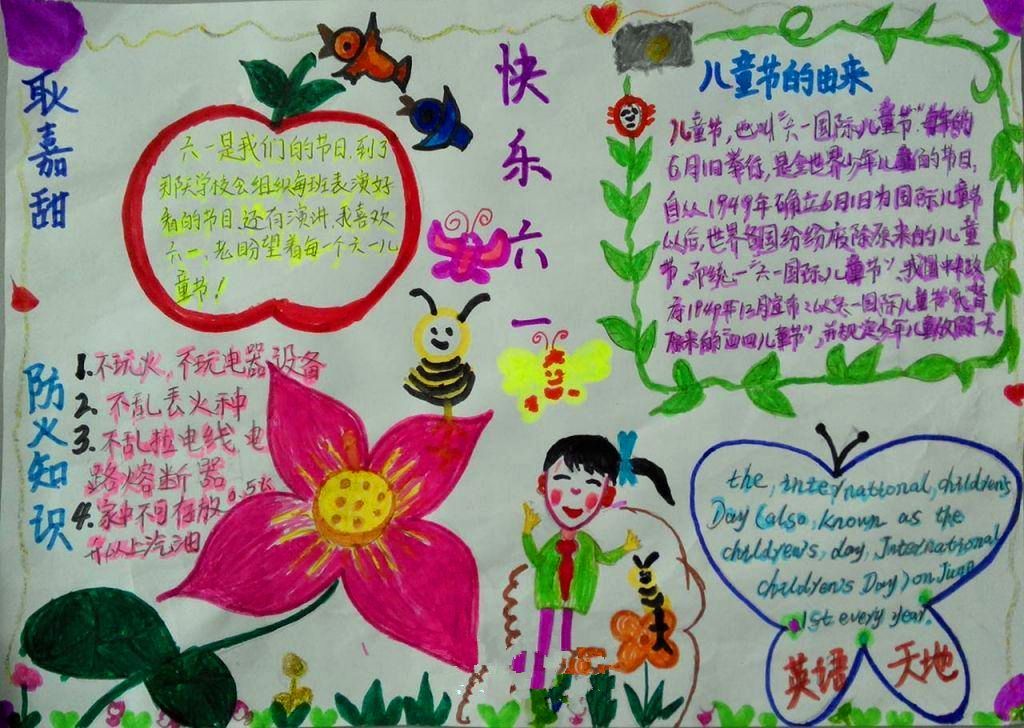 耿嘉甜
快乐六一
六一是我们的节日,到了
那天学校会组织每班表演好
看的节目,还有演讲,我喜欢
六一,老盼望着每一个六一儿
童节!
儿童节的由来
儿童节,也叫"六一国际儿童节"每年的
6月1日举行,是全世界少年儿童们的节日,
自从1949年确立6月1日为国际儿童节
以后,世界各国纷纷废除原来的儿童
节,而统一"六一国际儿童节",我国中央政
府1949年12月宣布:以六一国际儿童节代替
原来的"四四儿童节",并规定少年儿童放假一天。
防火知识
1.不玩火,不玩电器设备
2. 不乱丢火种
3. 不乱拉电线,电
路熔断器
4.家中不可存放0.5L
升以上汽油
the, international, children's
Day (also, known as the
children's, day, International
children's Day) on June
1st every year.
英语天地